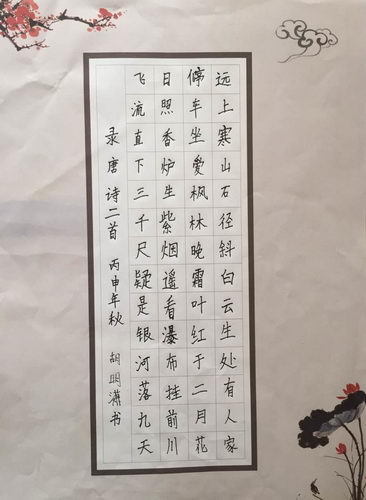 远上寒山石径斜白云生处有人家
停车坐爱枫林晚霜叶红于二月花
日照香炉生紫烟遥看瀑布挂前川
飞流直下三千尺疑是银河落九天
录唐诗二首 丙申年秋 胡明潇书